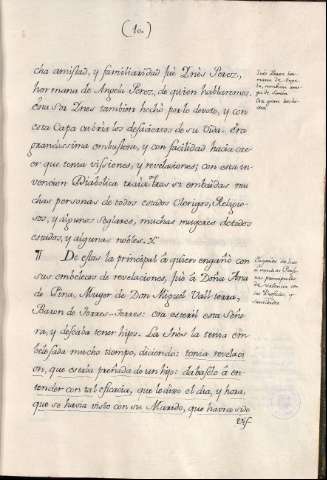 (10.)
cha amistad, y familiaridad fué Ynès Perez,
hermana de Angela Perez, de quien hablaremos.
Esta Sor Ynes tambien hechó por lo devoto, y con
esta Capa cubria los desfueceros de su vida. era
grandissima embustera, y con facilidad hacia cre-
er que tenia vissiones, y revelaciones; con esta in-
vencion Diabolica traia tras si embaidas mu
chas personas de todos estados Clerigos, Religio-
sos, y algunos seglares, muchas mugeres de todos
estados, y algunas nobles.
De estas la principal à quien engañó con
sus embelecos de revelaciones, fuè la Doña Ana
de Pena, Muger de Don Miguel Vallterra,
Baron de Torres-Torres: era esteril esta Seño
ra, y deseaba tener hijos. La Ynès la tenia em-
belesada mucho tiempo, diciendo: tenia revelaci
on, que estaba preñada de un hijo: dabaselo à en-
tender con tal eficacia, que le dixo el dia, y hora,
que se havia visto con su Marido, que havia sido
Ynès Perez her-
mana de Ange-
la, tambien ami-
ga de
Era gran hechi-
zera
Engaños de Ynes
à muchas Perso-
nas principales
de Valencia con
su Diabolica
santidad